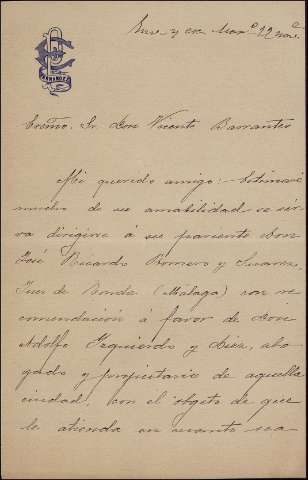 Excmo. Sr. Don Vicente Barrantes
Mi querido amigo: Estimaré
mucho de su amabilidad se sir
va dirigirse á su pariente Don
José Ricardo Romero y Suarez,
Juez de Ronda (Málaga) con re
comendación á favor de Don
Adolfo Izquierdo y Diez, abo
gado y propietario de aquella
ciudad, con el objeto de que
le atienda en cuanto sea